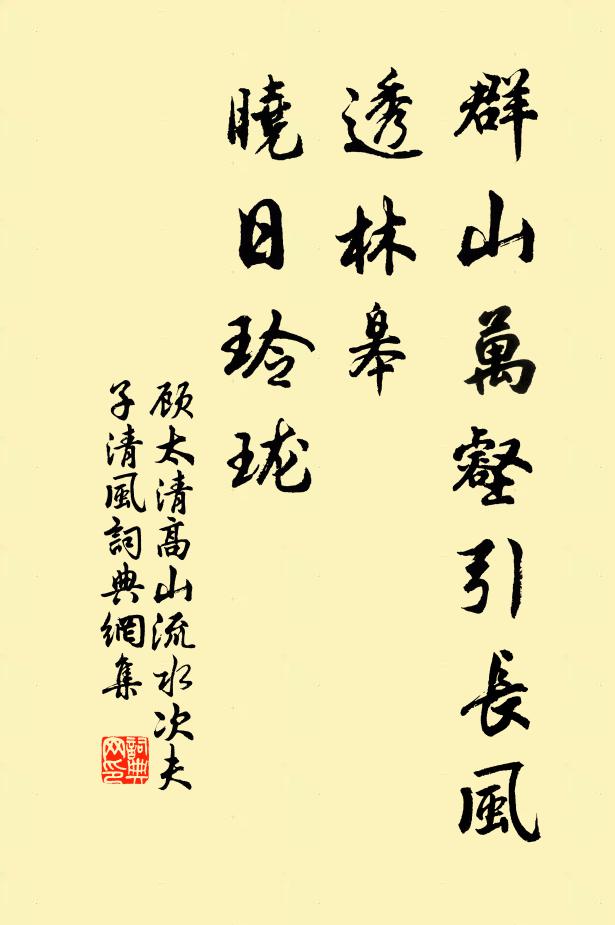 群山萬壑引長風
透林皋
曉日玲珑
顾太清高山流水次夫
子清風詞典網集
詞典
网印